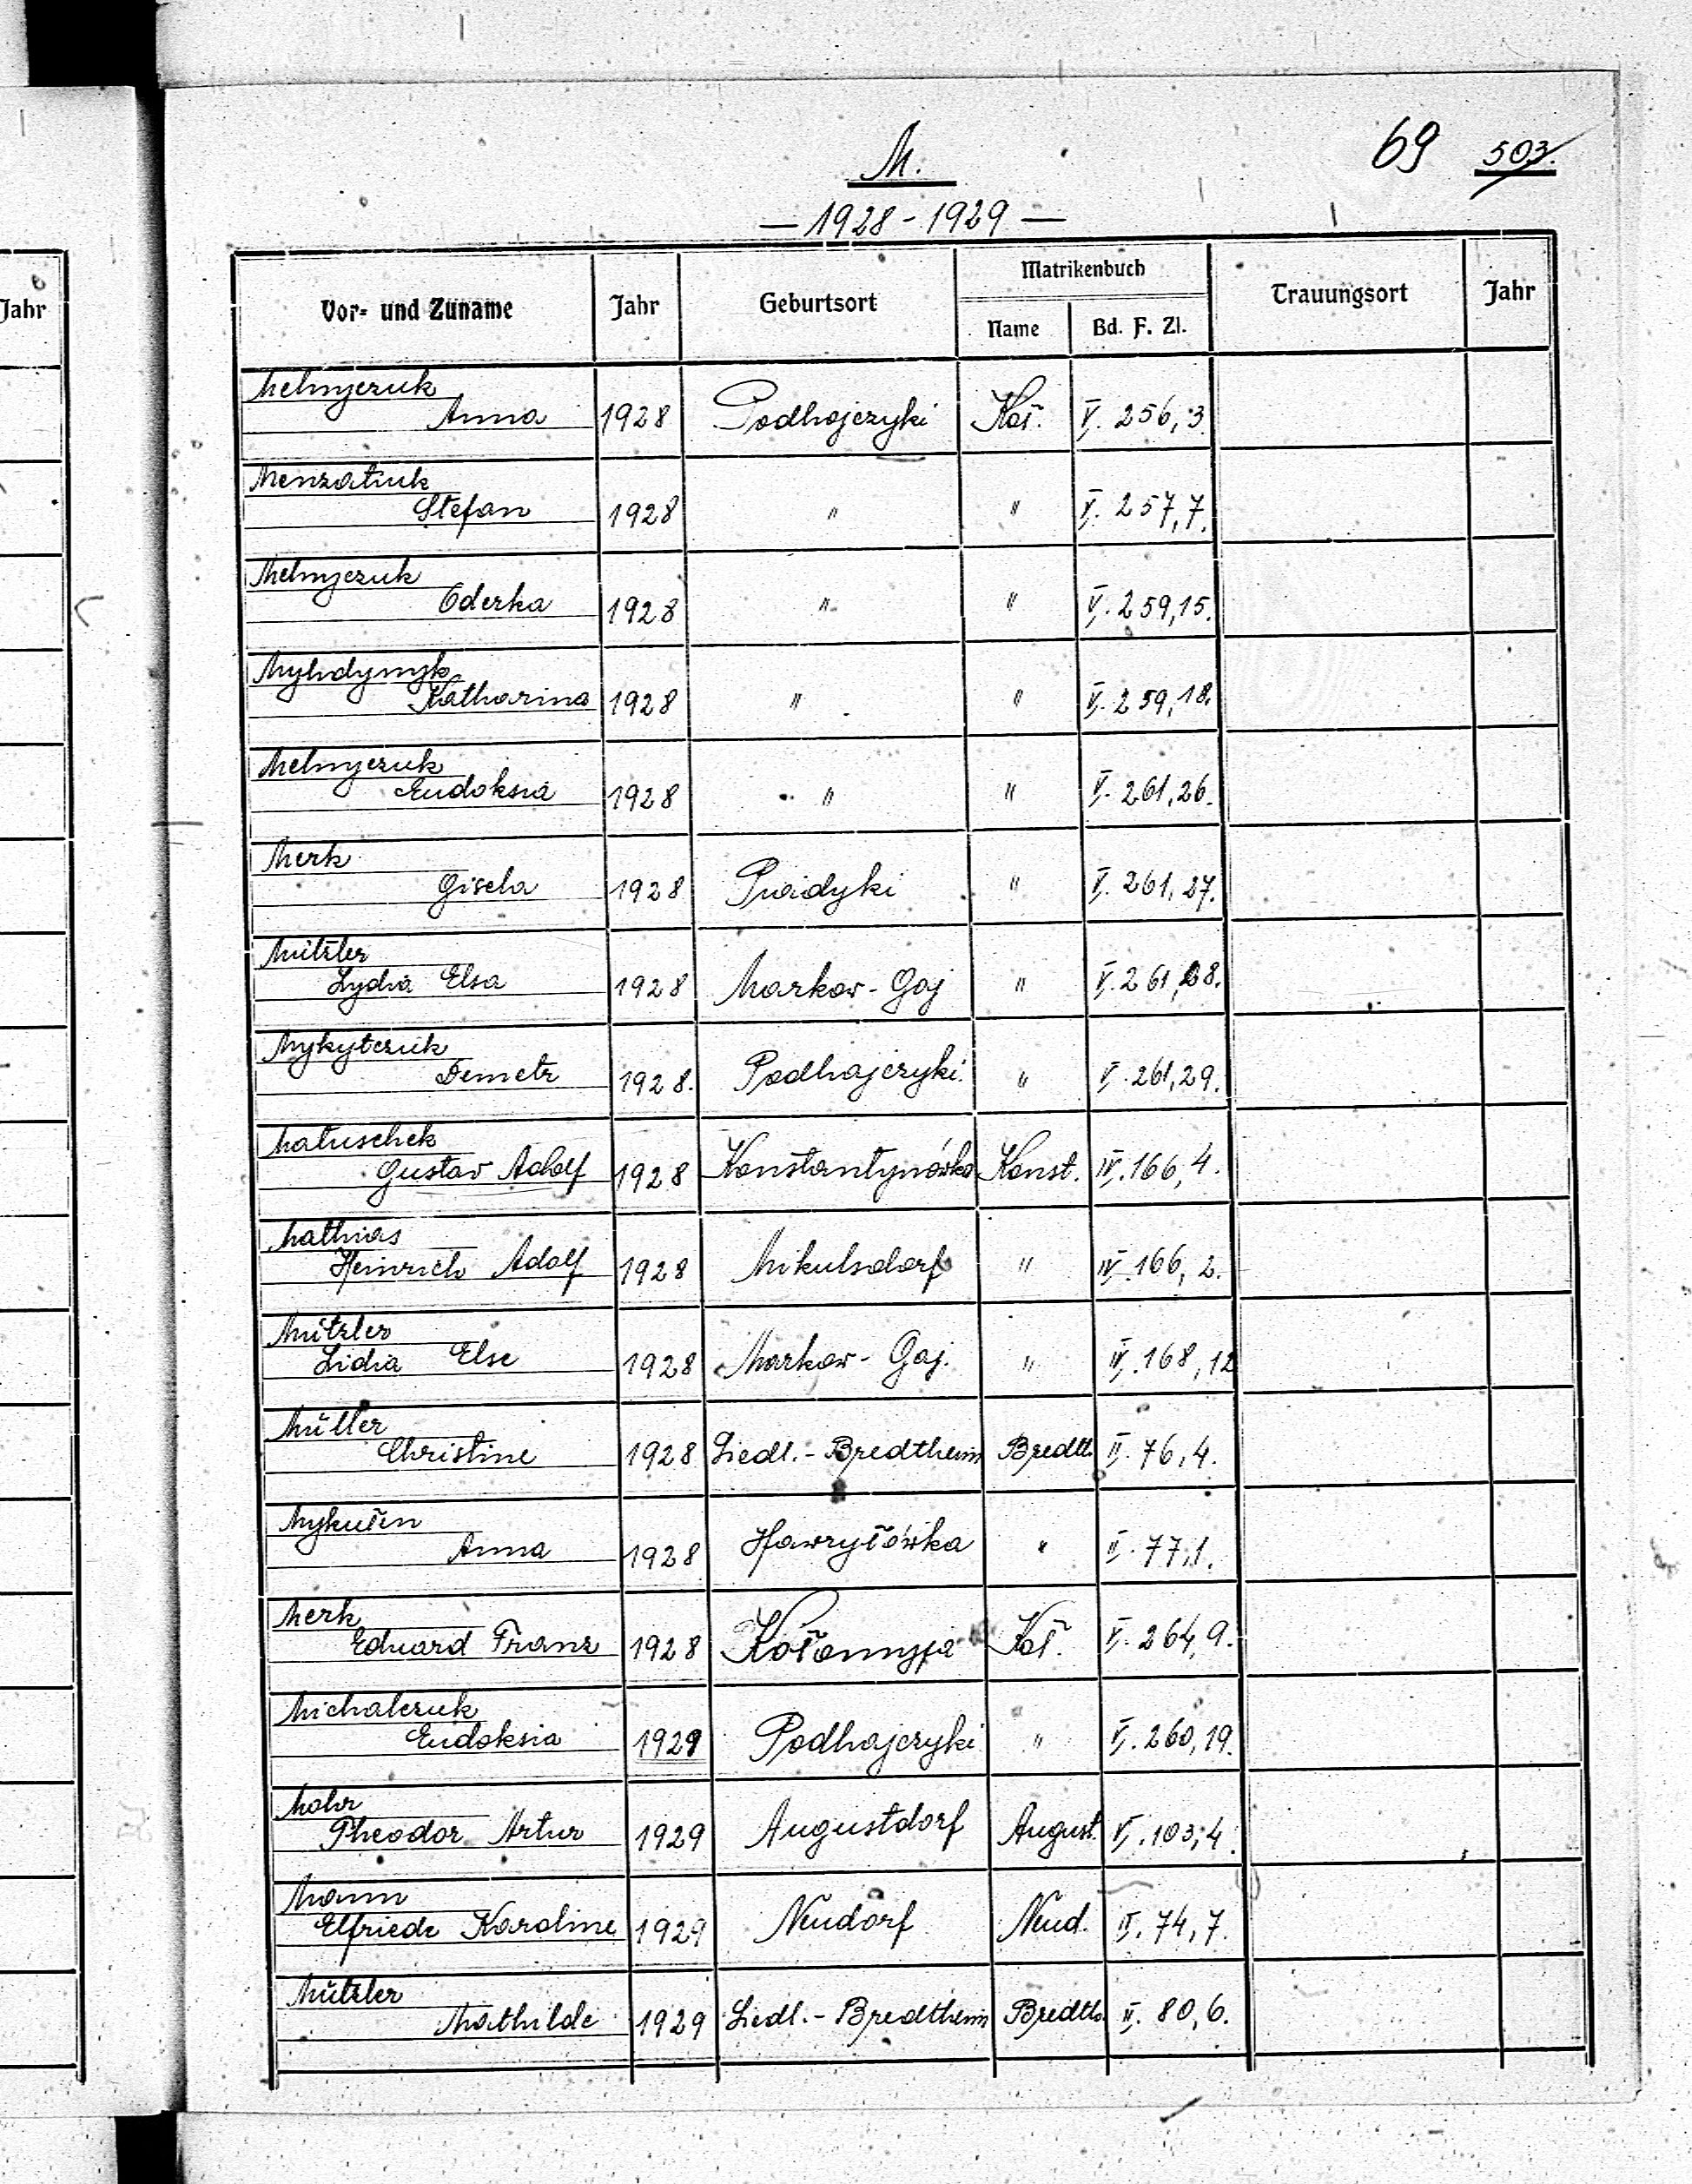 Jahr
M.
69 503.
— 1928 - 1929 —
Vor- und Zuname Jahr Geburtsort Matrikenbuch Trauungsort Jahr
Name Bd. F. Zl.
Melnyczuk
Anna 1928 Podhajczyki Koł. V. 256, 3.
Menzatiuk
Stefan 1928 " " V. 257, 7.
Melnyczuk
Oderka 1928 " " V. 259, 15.
Katharina 1928 " " V. 259, 18.
Melnyczuk
Eudoksia 1928 " " V. 261, 26.
Merk
Gisela 1928 " V. 261, 27.
Mützler
Lydia Elsa 1928 Markow-Gaj " V. 261, 28.
Mykytczuk
Demetr 1928. Podhajczyki " V. 261, 29.
Matuschek
Gustav Adolf 1928 Konstantynówka Konst. IV. 166, 4.
Mathias
Heinrich Adolf 1928 Mikulsdorf " IV. 166, 2.
Mützler
Lidia Else 1928 Markow-Gaj. " IV. 168, 12
Müller
Christine 1928 Siedl.-Bredtheim Bredth. II. 76, 4.
Mykułin
Anna 1928 Hawryłówka " II. 77, 1.
Merk
Eduard Franz 1928 Kołomyja Koł. V. 264, 9.
Michalczuk
Eudoksia 1929 Podhajczyki " V. 260, 19.
Mohr
Theodor Artur 1929 Augustdorf August. V. 103, 4.
Mann
Elfriede Karoline 1929 Neudorf Neud. II. 74, 7.
Mützler
Mathilde 1929 Siedl.-Bredtheim Bredth. II. 80, 6.